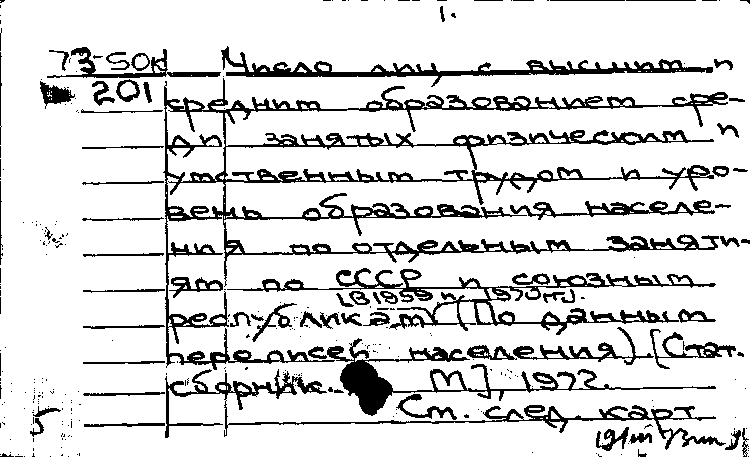 1.
73-50к Число лиц с высшим и
201 средним образованием сре-
ди занятых физическим и
умственным трудом и уро-
вень образования населе-
ния по отдельным заняти-
ям по СССР и союзным
[В 1959 и 1970 гг.].
республикам (По данным
переписей населения) [Стат.
сборник. М], 1972.
См. след. карт.
5